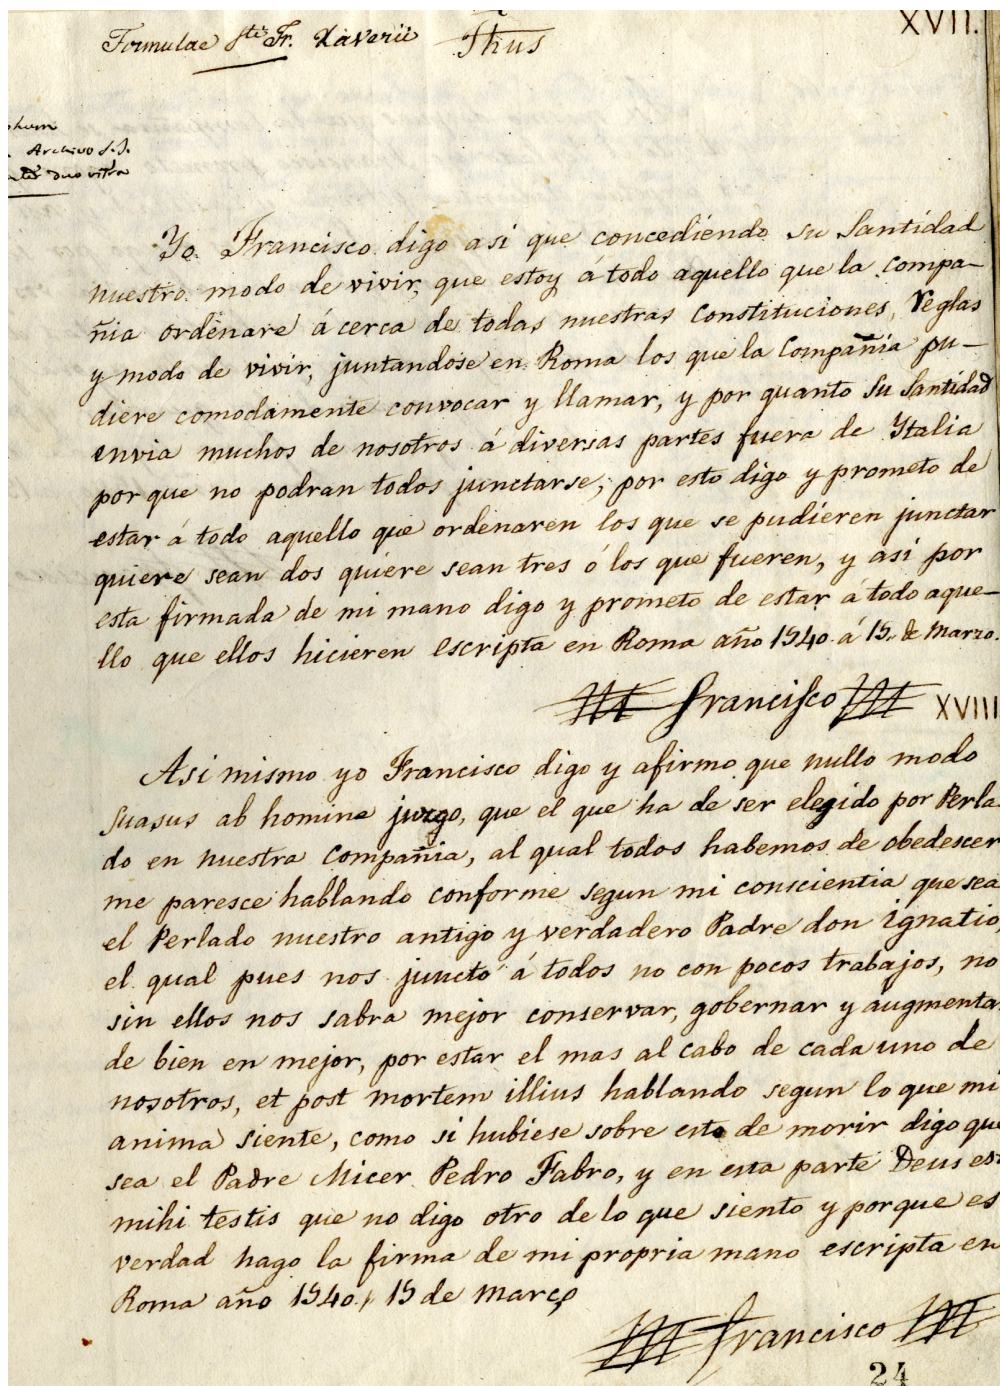 Formulae Sti Fr. Xaverii Jhus XVII.
Archivo S.J.
duo vitra
Yo Francisco digo asi que concediendo su Santidad
nuestro modo de vivir, que estoy á todo aquello que la compa-
ñia ordenare á cerca de todas nuestras Constituciones, Reglas
y modo de vivir, juntandose en Roma los que la Compañia pu-
diere comodamente convocar y llamar, y por quanto Su Santidad
envia muchos de nosotros á diversas partes fuera de Ytalia
por que no podran todos junctarse, por esto digo y prometo de
estar á todo aquello que ordenaren los que se pudieren junctar
quiere sean dos quiere sean tres ó los que fueren, y asi por
esta firmada de mi mano digo y prometo de estar á todo aque-
llo que ellos hicieren Escripta en Roma año 1540 á 15 de Marzo.
Francisco
XVIII
Asi mismo yo Francisco digo y afirmo que nullo modo
Suasus ab homine juzgo, que el que ha de ser elegido por Perla
do en nuestra Compañia, al qual todos habemos de obedescer
me paresce hablando conforme segun mi conscientia que sea
el Perlado nuestro antigo y verdadero Padre don Ignatio,
el qual pues nos junctó á todos no con pocos trabajos, no
sin ellos nos sabra mejor conservar, gobernar y augmenta
de bien en mejor, por estar el mas al cabo de cada uno de
nosotros, et post mortem illius hablando segun lo que mi
anima siente, como si hubiese sobre esto de morir digo que
sea el Padre Micer Pedro Fabro, y en esta parte Deus est
mihi testis que no digo otro de lo que siento y porque es
verdad hago la firma de mi propria mano escripta en
Roma año 1540, 15 de março
Francisco
24